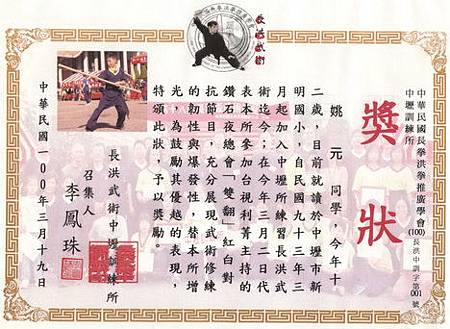 中華民國長拳洪拳推廣學會
中壢訓練所
(100)長洪中訓字第001號
獎狀
姚元同學，今年十
二歲，目前就讀於中壢市新
明國小，自民國九十三年三
月起加入中壢所練習長洪武
術迄今；在今年三月二日代
表本所參加台視利菁主持的
鑽石夜總會「雙翻」紅白對
抗節目，充分展現武術修練
的韌性與爆發性，替本所增
光，為鼓勵其優越的表現，
特頒此狀，予以獎勵。
長洪武術中壢訓練所
召集人 李鳳珠
中華民國一00年三月十九日
長洪武術